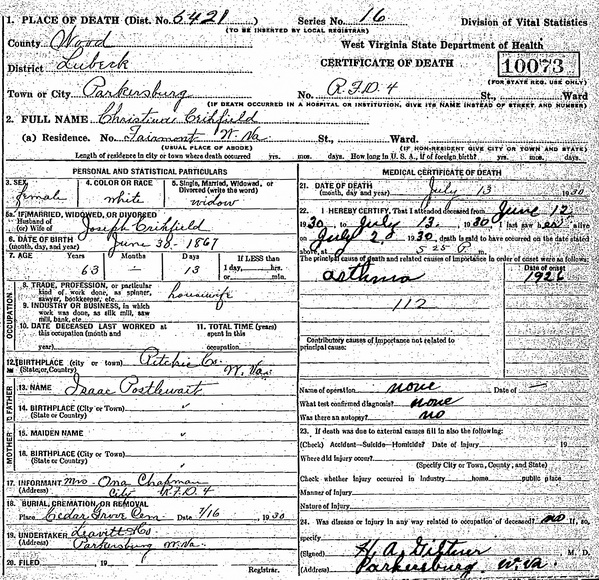 1. PLACE OF DEATH (Dist. No. 6421 Series No. 16 Division of Vital Statistics
(TO BE INSERTED BY LOCAL REGISTRAR)
County Wood West Virginia State Department of Health
District Lubeck CERTIFICATE OF DEATH 10073
(FOR STATE REG. USE ONLY)
Town or City Parkersburg No. R.F.D. 4 St., Ward
(IF DEATH OCCURRED IN A HOSPITAL OR INSTITUTION, GIVE ITS NAME INSTEAD OF STREET AND NUMBER)
2. FULL NAME Christina Crihfield
(a) Residence. No. Fairmont W. Va. St., Ward.
(USUAL PLACE OF ABODE) (IF NON-RESIDENT GIVE CITY OR TOWN AND STATE)
Length of residence in city or town where death occurred yrs. mos. days. How long in U. S. A., if of foreign birth? yrs. mos. days.
PERSONAL AND STATISTICAL PARTICULARS
3. SEX 4. COLOR OR RACE 5. Single, Married, Widowed, or Divorced (write the word)
female white widow
5a. IF MARRIED, WIDOWED, OR DIVORCED
Husband of
(or) Wife of Joseph Crihfield
6. DATE OF BIRTH
(month, day, and year) June 30 - 1867
7. AGE Years Months Days IF LESS than
63 — 13 1 day, hrs.
or min.
OCCUPATION
8. TRADE, PROFESSION, or particular
kind of work done, as spinner,
sawyer, bookkeeper, etc. housewife
9. INDUSTRY OR BUSINESS, in which
work was done, as silk mill, saw
mill, bank, etc.
10. DATE DECEASED LAST WORKED at 11. TOTAL TIME (years)
this occupation (month and spent in this
year) occupation
12. BIRTHPLACE (city or town) Ritchie Co.
(State, or, Country) W. Va.
FATHER
13. NAME Isaac Postlewait
14. BIRTHPLACE (City or Town) "
(State or Country)
MOTHER
15. MAIDEN NAME "
16. BIRTHPLACE (City or Town) "
(State or Country)
17. INFORMANT Mrs. Ona Chapman
(Address) City R.F.D. 4
18. BURIAL, CREMATION, OR REMOVAL
Place Cedar Grove Cem Date 7/16 1930
19. UNDERTAKER Leavitt
(Address) Parkersburg W. Va.
20. FILED 19
Registrar.
MEDICAL CERTIFICATE OF DEATH
21. DATE OF DEATH
(month, day and year) July 13 1930
22. I HEREBY CERTIFY, That I attended deceased from June 12
1930, to July 13, 1930, I last saw her alive
on July 2 1930, death is said to have occurred on the date stated
above, at 5 25 P m.
The principal cause of death and related causes of importance in order of onset were as follows:
Date of onset
asthma 1926
112
Contributory causes of importance not related to
principal cause:
Name of operation none Date of —
What test confirmed diagnosis? none
Was there an autopsy? no
23. If death was due to external causes fill in also the following:
(Check) Accident—Suicide—Homicide? Date of Injury 19
Where did injury occur?
(Specify City or Town, County, and State)
Check whether injury occurred in Industry home public place
Manner of Injury
Nature of Injury
24. Was disease or injury in any way related to occupation of deceased? no If so,
specify
(Signed) M. D.
(Address) Parkersburg W. Va.